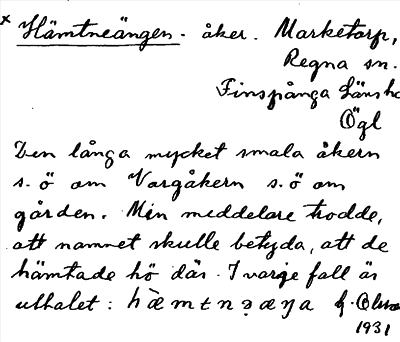 x Hämtneängen. åker. Marketorp,
Regna sn.
Finspånga Länsh
Ögl
Den långa mycket smala åkern
s. ö om Vargåkern s. ö om
gården. Min meddelare trodde,
att namnet skulle betyda, att de
hämtade hö där. I varje fall är
uttalet:
1931